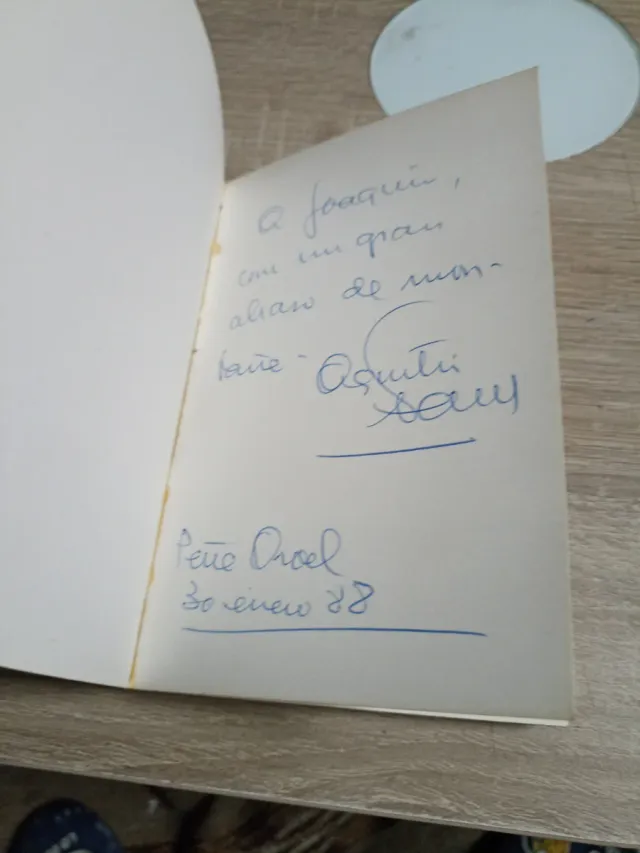 A Joaquin,
con un gran
abrazo de mon-
taña -
Agustín
Peña Oroel
30 enero 88